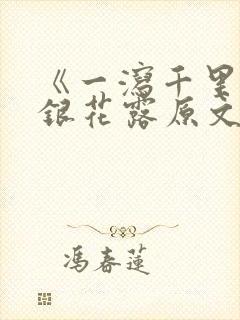 《一泻千里
银花露原文
冯春莲